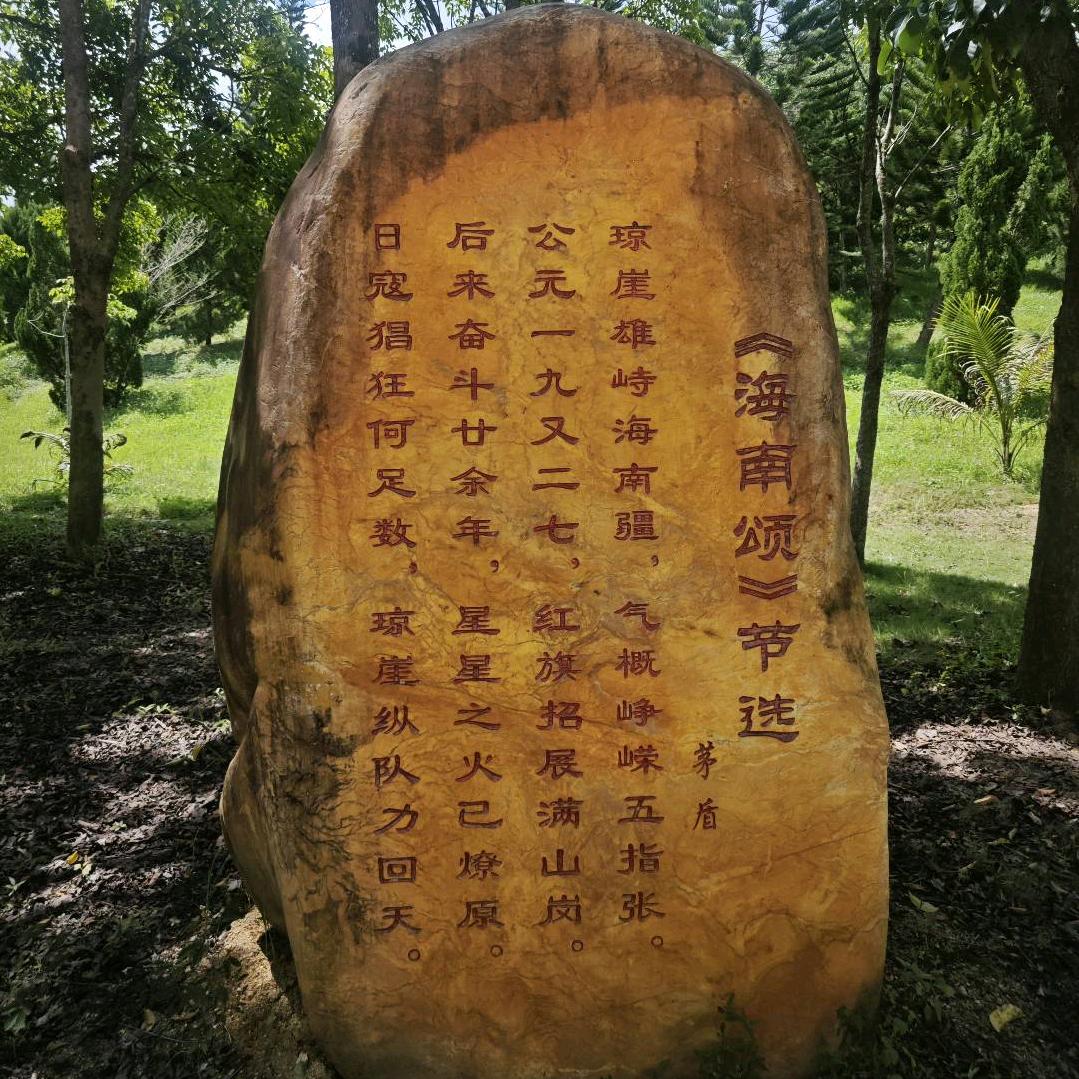 《海南颂》节选
茅盾
琼崖雄峙海南疆，气概峥嵘五指张。
公元一九又二七，红旗招展满山岗。
后来奋斗廿余年，星星之火已燎原。
日寇猖狂何足数，琼崖纵队力回天。